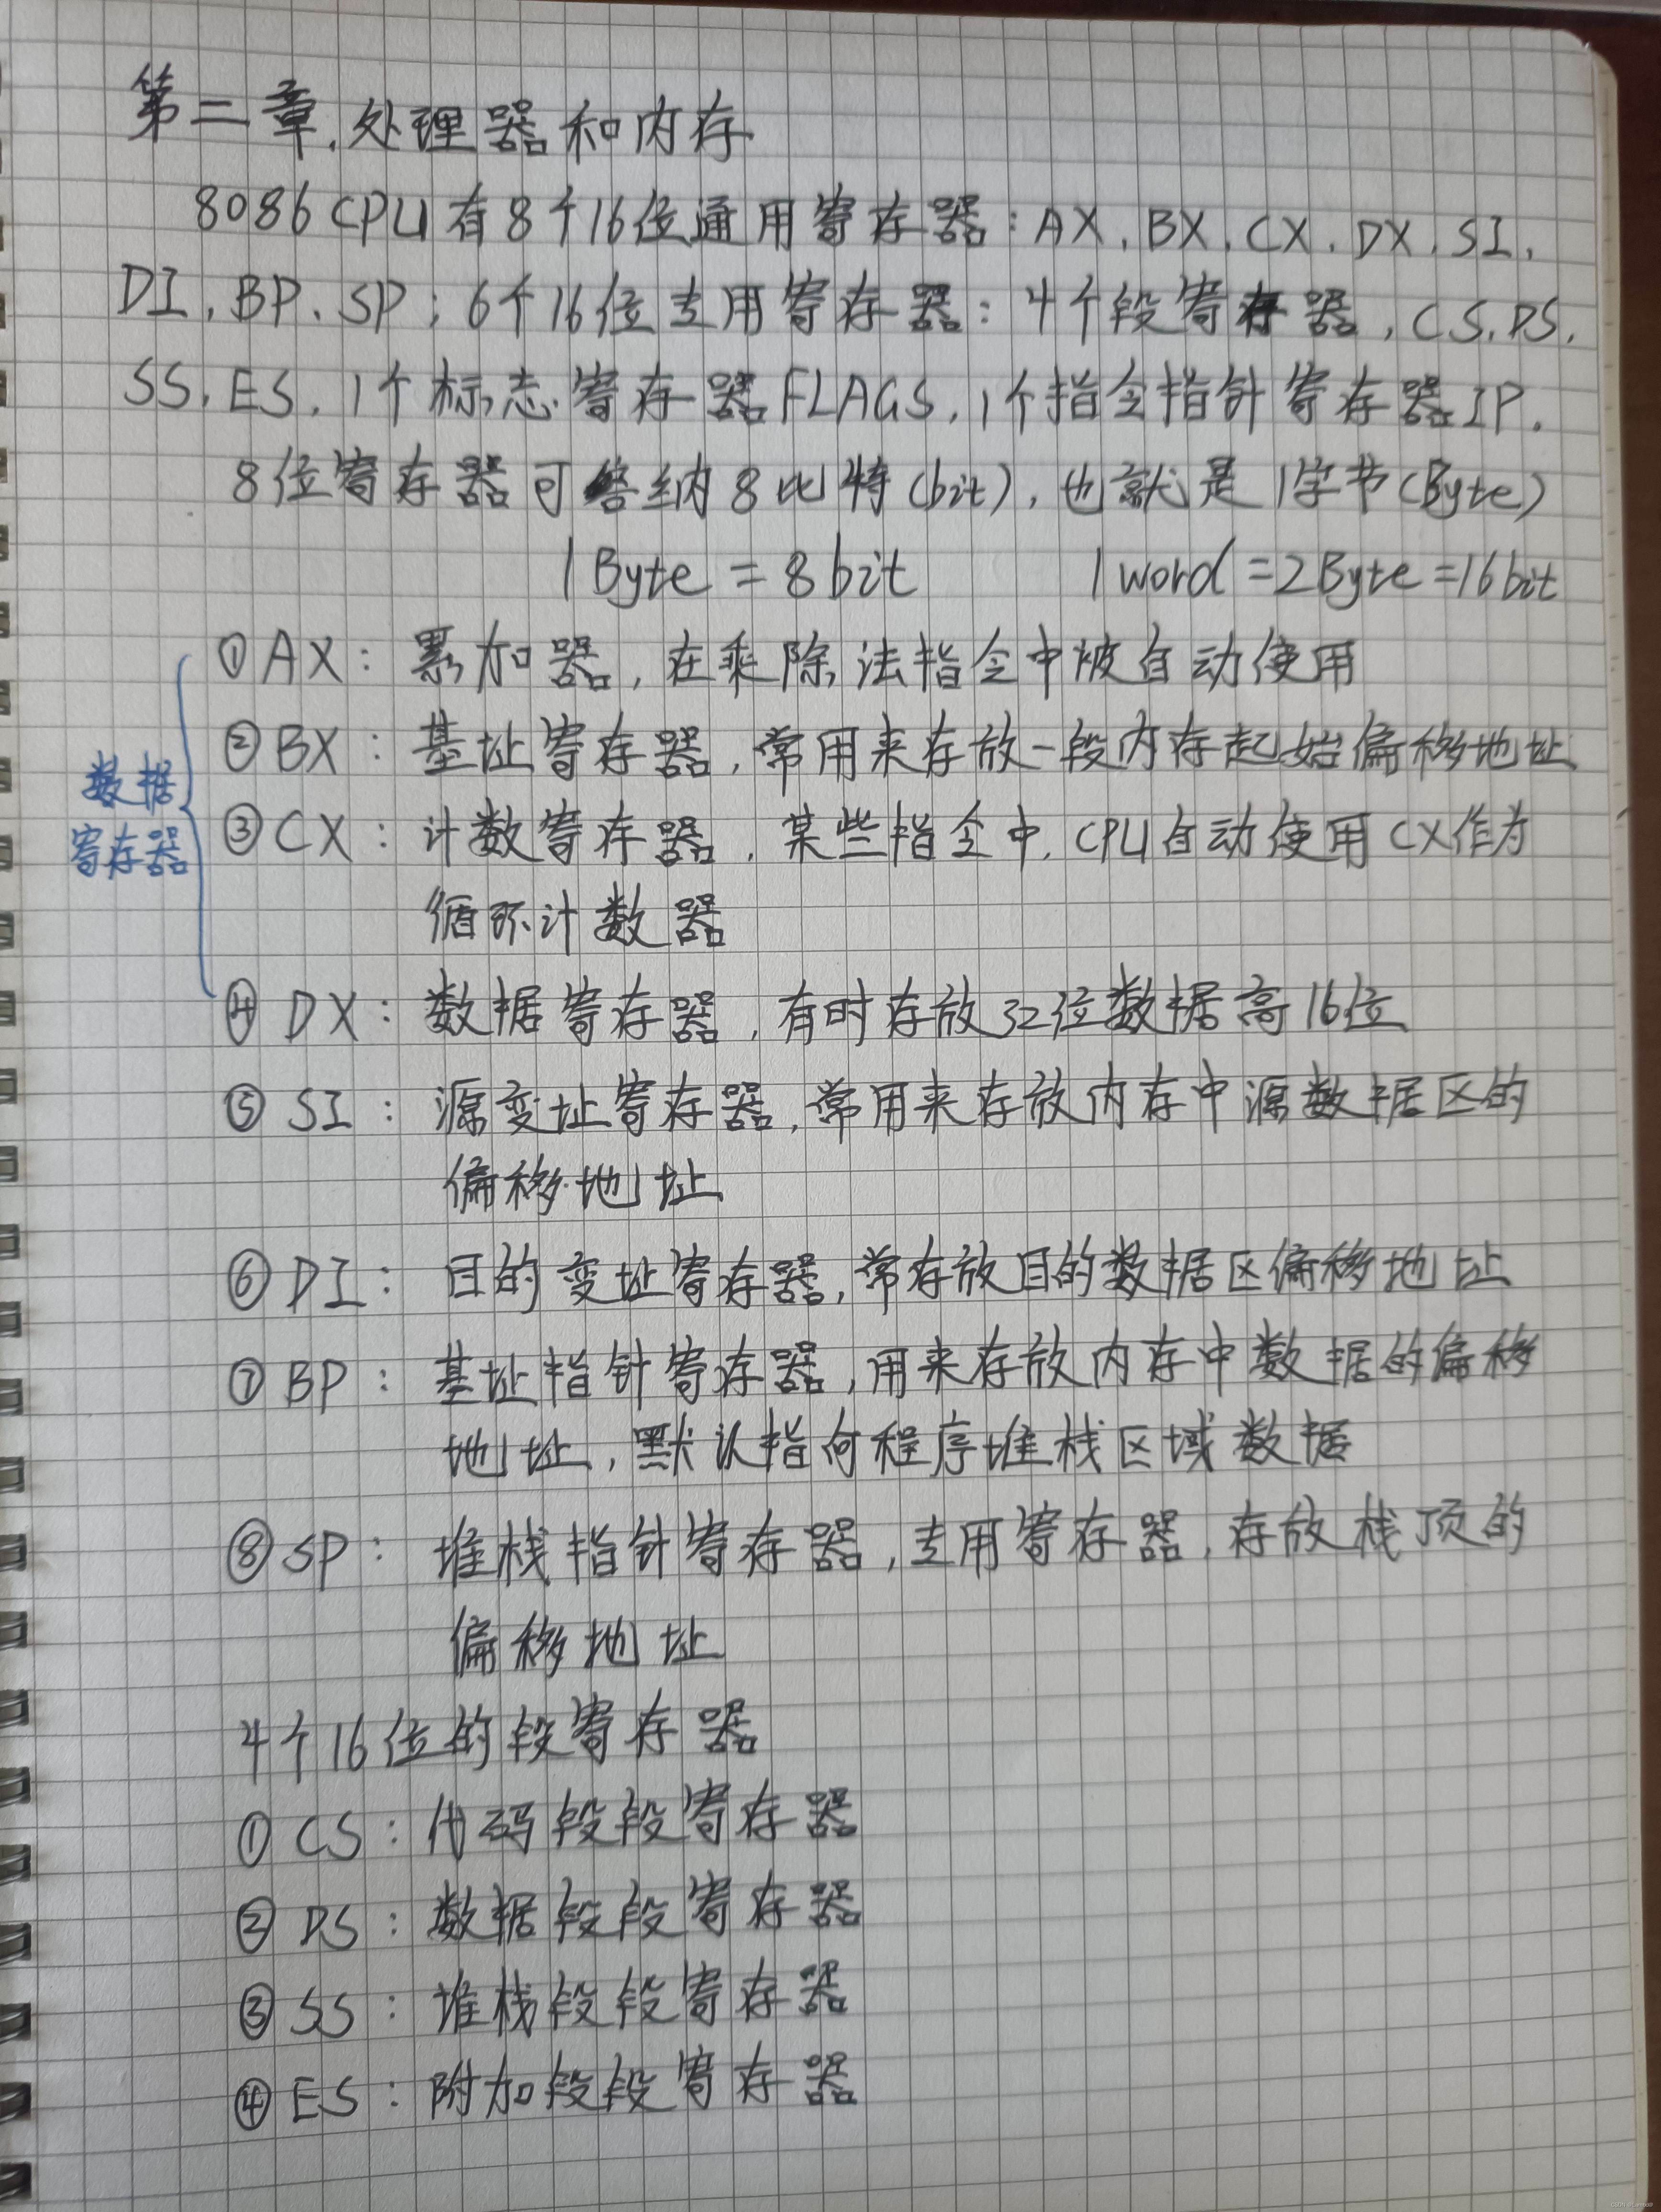 第二章.处理器和内存
8086 CPU有8个16位通用寄存器:AX、BX、CX、DX、SI、
DI、BP、SP;6个16位专用寄存器:4个段寄存器,CS、DS、
SS、ES、1个标志寄存器FLAGS、1个指令指针寄存器IP。
8位寄存器可容纳8比特(bit),也就是1字节(Byte)
1 Byte = 8 bit 1 word = 2 Byte = 16 bit
数据
寄存器
①AX:累加器,在乘除法指令中被自动使用
②BX:基址寄存器,常用来存放一段内存起始偏移地址
③CX:计数寄存器,某些指令中,CPU自动使用CX作为
循环计数器
④DX:数据寄存器,有时存放32位数据高16位
⑤SI:源变址寄存器,常用来存放内存中源数据区的
偏移地址
⑥DI:目的变址寄存器,常存放目的数据区偏移地址
⑦BP:基址指针寄存器,用来存放内存中数据的偏移
地址,默认指向程序堆栈区域数据
⑧SP:堆栈指针寄存器,专用寄存器,存放栈顶的
偏移地址
4个16位的段寄存器
①CS:代码段段寄存器
②DS:数据段段寄存器
③SS:堆栈段段寄存器
④ES:附加段段寄存器